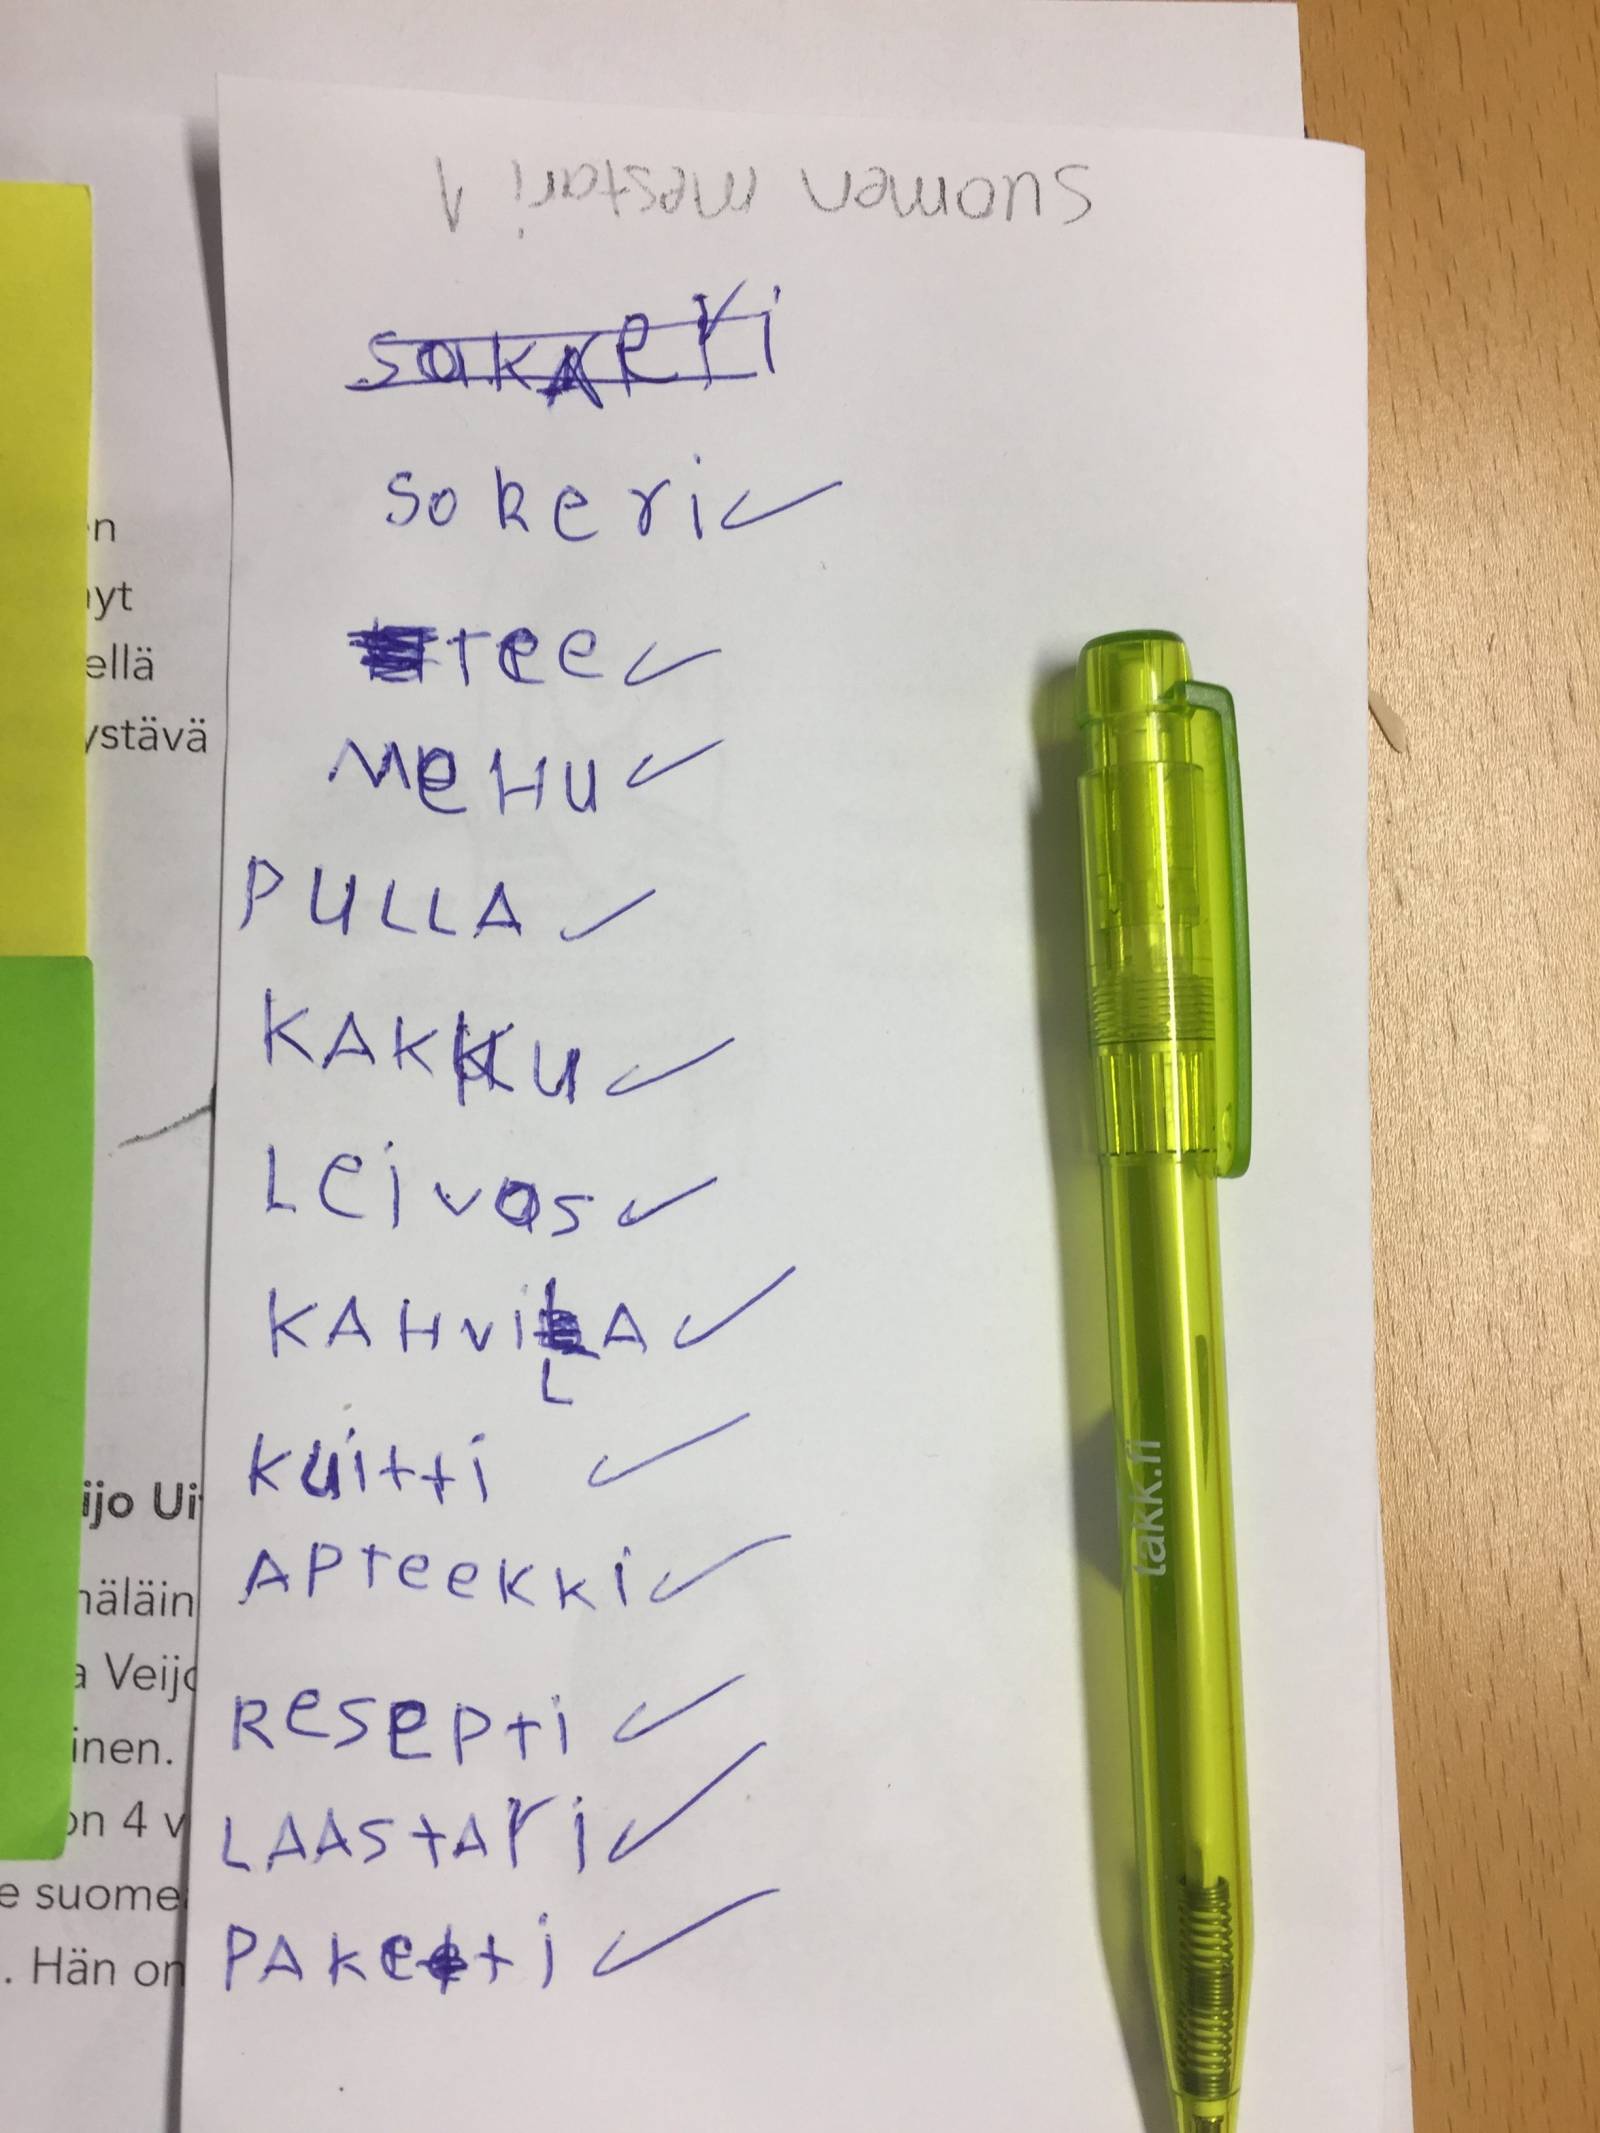 suomen mestari 1
sokeri
tee
MeHu
PULLA
KAKKU
Leivos
KAHviLA
kuitti
APteekki
Resepti
LAAStAri
PAketti
takk.fi
ellä
ystävä
ijo Ui
a Veijo
inen.
on 4 v
e suome
. Hän on